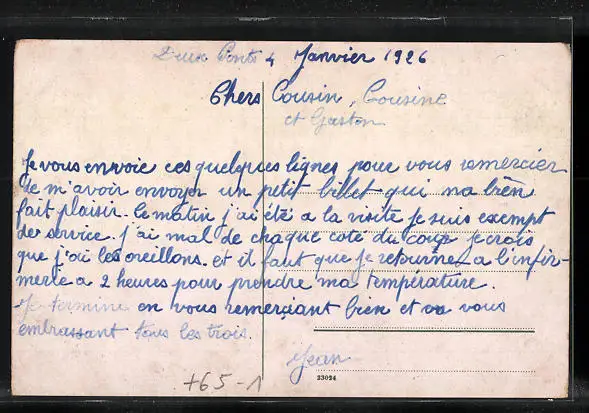 Deux Ponts 4 Janvier 1926
Chers Cousin, Cousine
et Gaston
Je vous envoie ces quelques lignes pour vous remercier
de m'avoir envoyer un petit billet qui ma bien
fait plaisir. Ce matin j'ai été a la visite je suis exempt
de service. j'ai mal de chaque coté du cou je crois
que j'ai les oreillons. et il faut que je retourne a l'infir-
merie a 2 heures pour prendre ma température.
Je termine en vous remerciant bien et en vous
embrassant tous les trois.
Jean
23024
+65-1